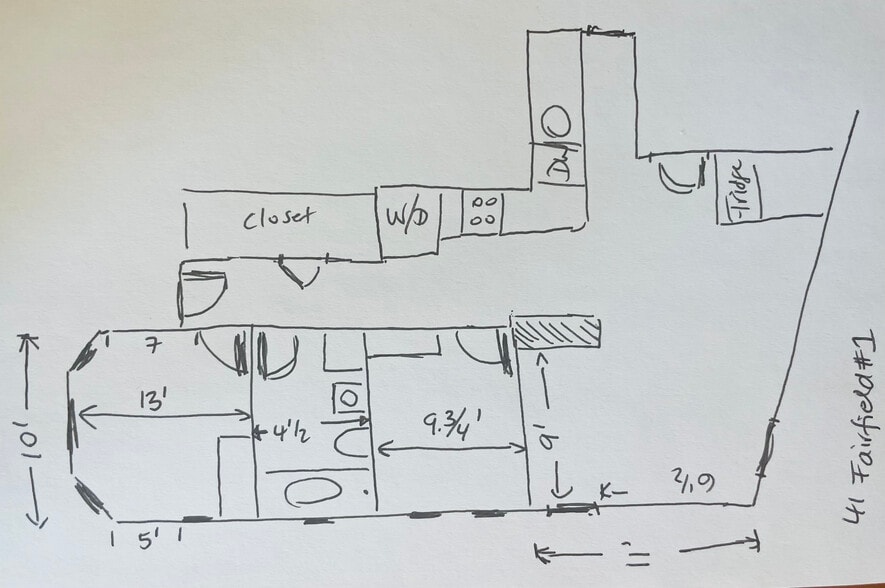 Dw
Fridge
closet
W/D
7
13'
4'1/2
9.3/4'
9'
10'
5'
41 Fairfield #1